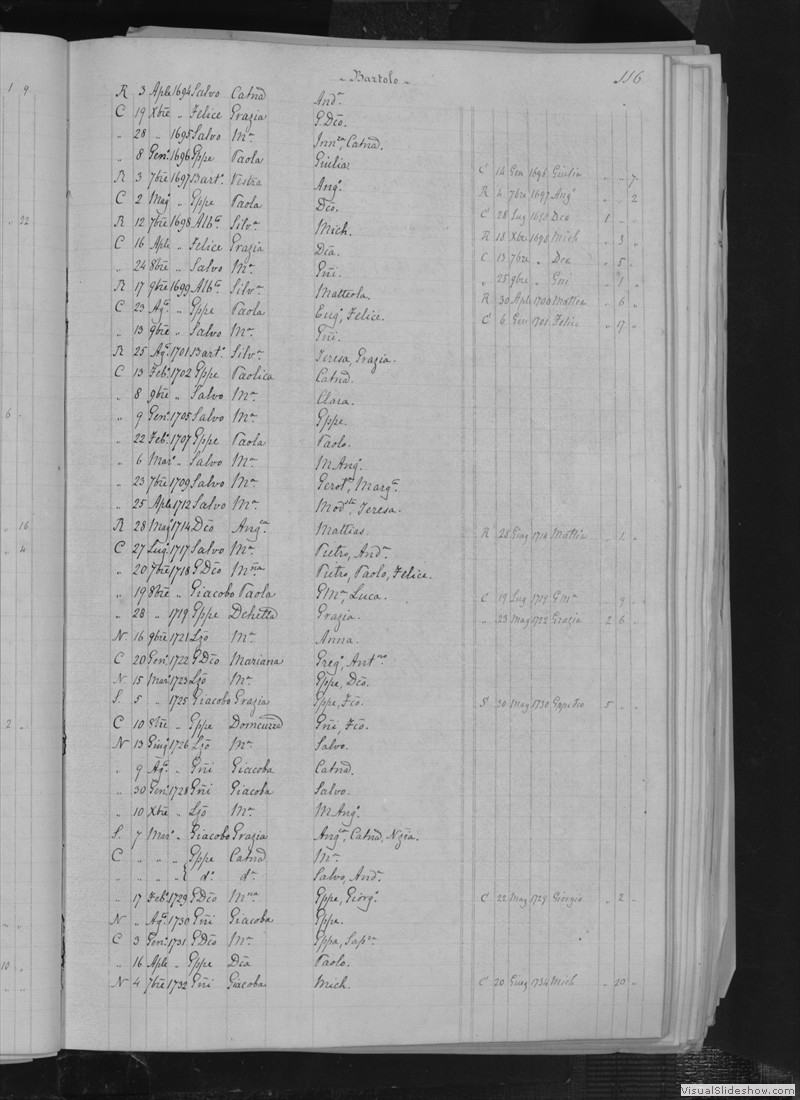 1 9
22
6
16
4
2
10
- Bartolo -
116
R 3 Aple 1694 Salvo Catnd And.
C 19 Xbre „ Felice Grazia G. Dco.
„ 28 „ 1695 Salvo Ma. Innza, Catnd.
„ 8 Gen. 1696 Gppe Paola Giulia. C 14 Gen 1696 Giulia „ „ 7
R 3 7bre 1697 Bart. Vestra Ang. R 4 7bre 1697 Ang. „ „ 2
C 2 Mag. „ Gppe Paola Dco. C 28 Lug 1698 Dco 1 „ „
R 12 7bre 1698 Alb. Silv. Mich. R 18 Xbre 1698 Mich „ 3 „
C 16 Aple „ Felice Grazia Dca. C 13 7bre „ Dca „ 5 „
„ 24 8bre „ Salvo Ma. Gni. „ 25 9bre „ Gni „ 1 „
R 17 9bre 1699 Alb. Silv. Matteola. R 30 Aple 1700 Mattea „ 6 „
C 23 Ag. „ Gppe Paola Eug, Felice. C 6 Gen 1701 Felice „ 17 „
„ 13 9bre „ Salvo Ma. Gni.
R 25 Ag. 1701 Bart. Silv. Teresa, Grazia.
C 13 Feb. 1702 Gppe Paolica Catnd.
„ 8 9bre „ Salvo Ma. Clara.
„ 9 Gen. 1705 Salvo Ma. Gppe.
„ 22 Feb. 1707 Gppe Paola Paolo.
„ 6 Mar. „ Salvo Ma. M Ang.
„ 23 7bre 1709 Salvo Ma. Gerot, Marg.
„ 25 Aple 1712 Salvo Ma. Modta, Teresa.
R 28 Mag. 1714 Dco Angca Mattias. R 28 1714 Mattia „ 1 „
C 27 Lug. 1717 Salvo Ma. Pietro, And.
„ 20 7bre 1718 G Dco Mna Pietro, Paolo, Felice.
„ 19 8bre „ Giacobo Paola GMa, Luca. C 19 Lug 1719 GMa „ 9 „
„ 28 „ 1719 Gppe Dchetta Grazia. „ 23 Mag 1722 Grazia 2 6 „
N 16 9bre 1721 Lzo Ma. Anna.
C 20 Gen. 1722 G Dco Mariana Greg, Antno
N 15 Mar. 1723 Lzo Ma. Gppe, Dco.
S. 5 „ 1725 Giacobo Grazia Gppe, Fco. S 30 Mag 1730 5 „ „
C 10 8bre „ Gppe Domcuzzd Gni, Fco.
N 13 Giug. 1726 Lzo Ma. Salvo.
„ 9 Ag. „ Gni Giacoba Catnd.
„ 30 Gen. 1728 Gni Giacoba Salvo.
„ 10 Xbre „ Lzo Ma. M Ang.
S. 7 Mar. „ Giacobo Grazia Angca, Catnd, Nzia.
C „ „ „ Gppe Catnd Ma.
„ „ „ „ { d. d. Salvo, And.
„ 17 Feb. 1729 G Dco Mna Gppe, Giorg. C 22 Mag 1729 Giorgio „ 2 „
N „ Ag. 1730 Gni Giacoba Gppe.
C 3 Gen. 1731 G Dco Ma. Gppa, Sap.
„ 16 Aple „ Gppe Dca Paolo.
N 4 7bre 1732 Gni Giacoba Mich. C 20 Giug 1734 Mich „ 10 „
VisualSlideshow.com